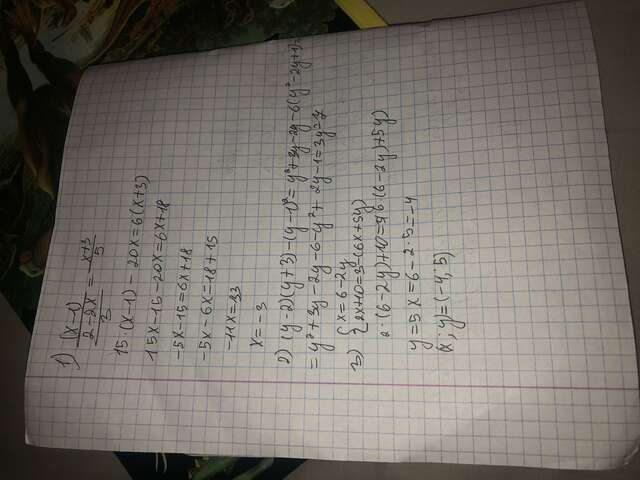 1) (x-1)/2 - 2x/3 = x+3/5
15·(x-1) - 20x = 6(x+3)
15x-15-20x=6x+18
-5x-15=6x+18
-5x-6x=18+15
-11x=33
x=-3
2) (y-2)(y+3)-(y-1)²= y²+3y-2y-6(y²-2y+1)=
= y²+3y-2y-6-y²+2y-1=3y-7
3) { x=6-2y
2x+10=3-(6x+5y)
2·(6-2y)+10=3-6·(6-2y)+5y)
y=5 x=6-2·5=-4
(x;y)=(-4;5)